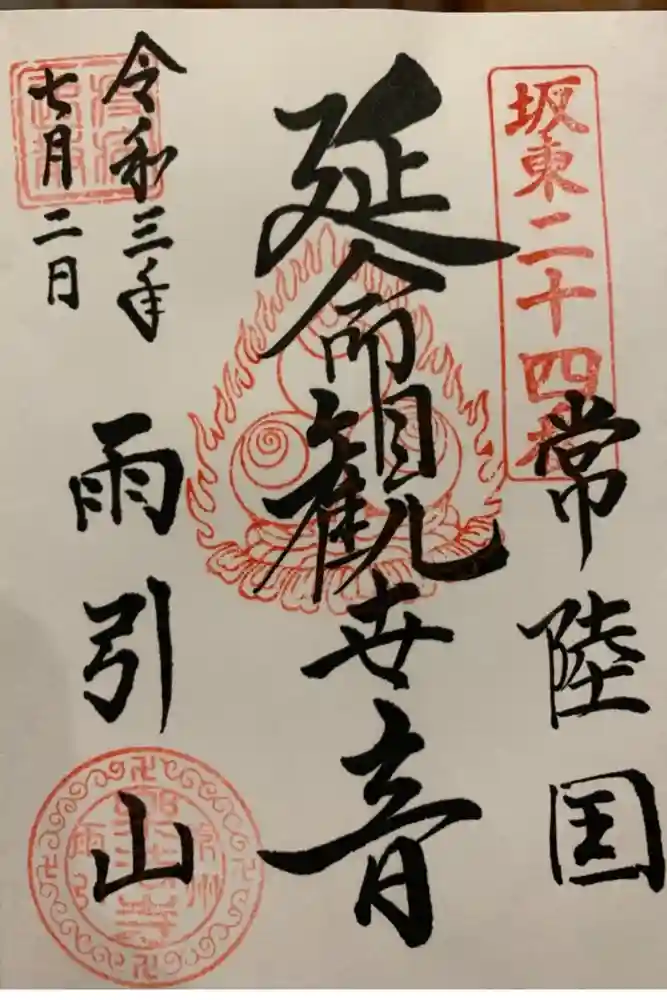 坂東二十四番
常陸国
延命観世音
令和三年
七月二日
雨引山